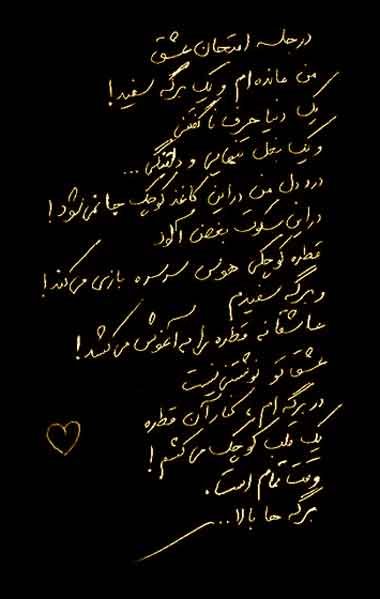 در جلسه امتحان عشق
من مانده‌ام و یک برگه سفید!
یک دنیا حرف ناگفتنی
و یک بغل تنهایی و دلتنگی...
درد دل من در این کاغذ کوچک جا نمی‌شود!
در این سکوت بغض آلود
قطره کوچکی هوس سرسره بازی می‌کند!
و برگه سفیدم
عاشقانه قطره را به آغوش می‌کشد!
عشق تو نوشتنی نیست
در برگه‌ام، کنار آن قطره
یک قلب کوچک می‌کشم!
وقت تمام است.
برگه ها بالا...